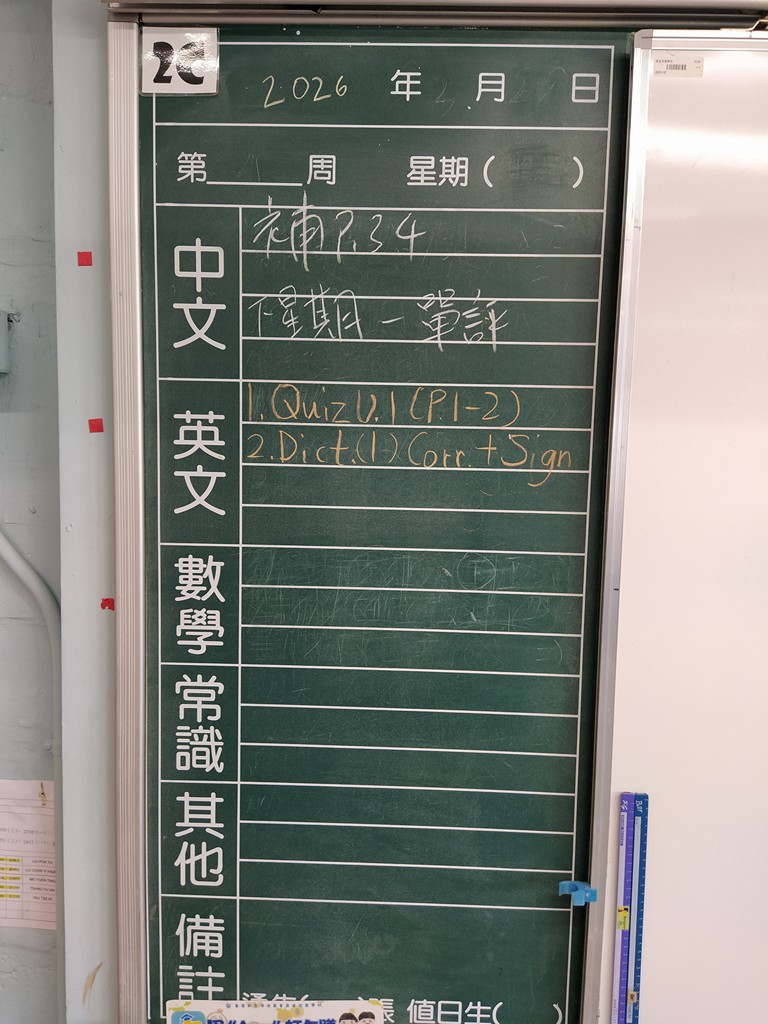 2C
2026 年 月 日
第 周 星期( )
中文
補P.34
下星期一單評
英文
1. Quiz U.1 (P.1-2)
2. Dict.(1) Corr. + Sign
數學
常識
其他
備註
值日生( )